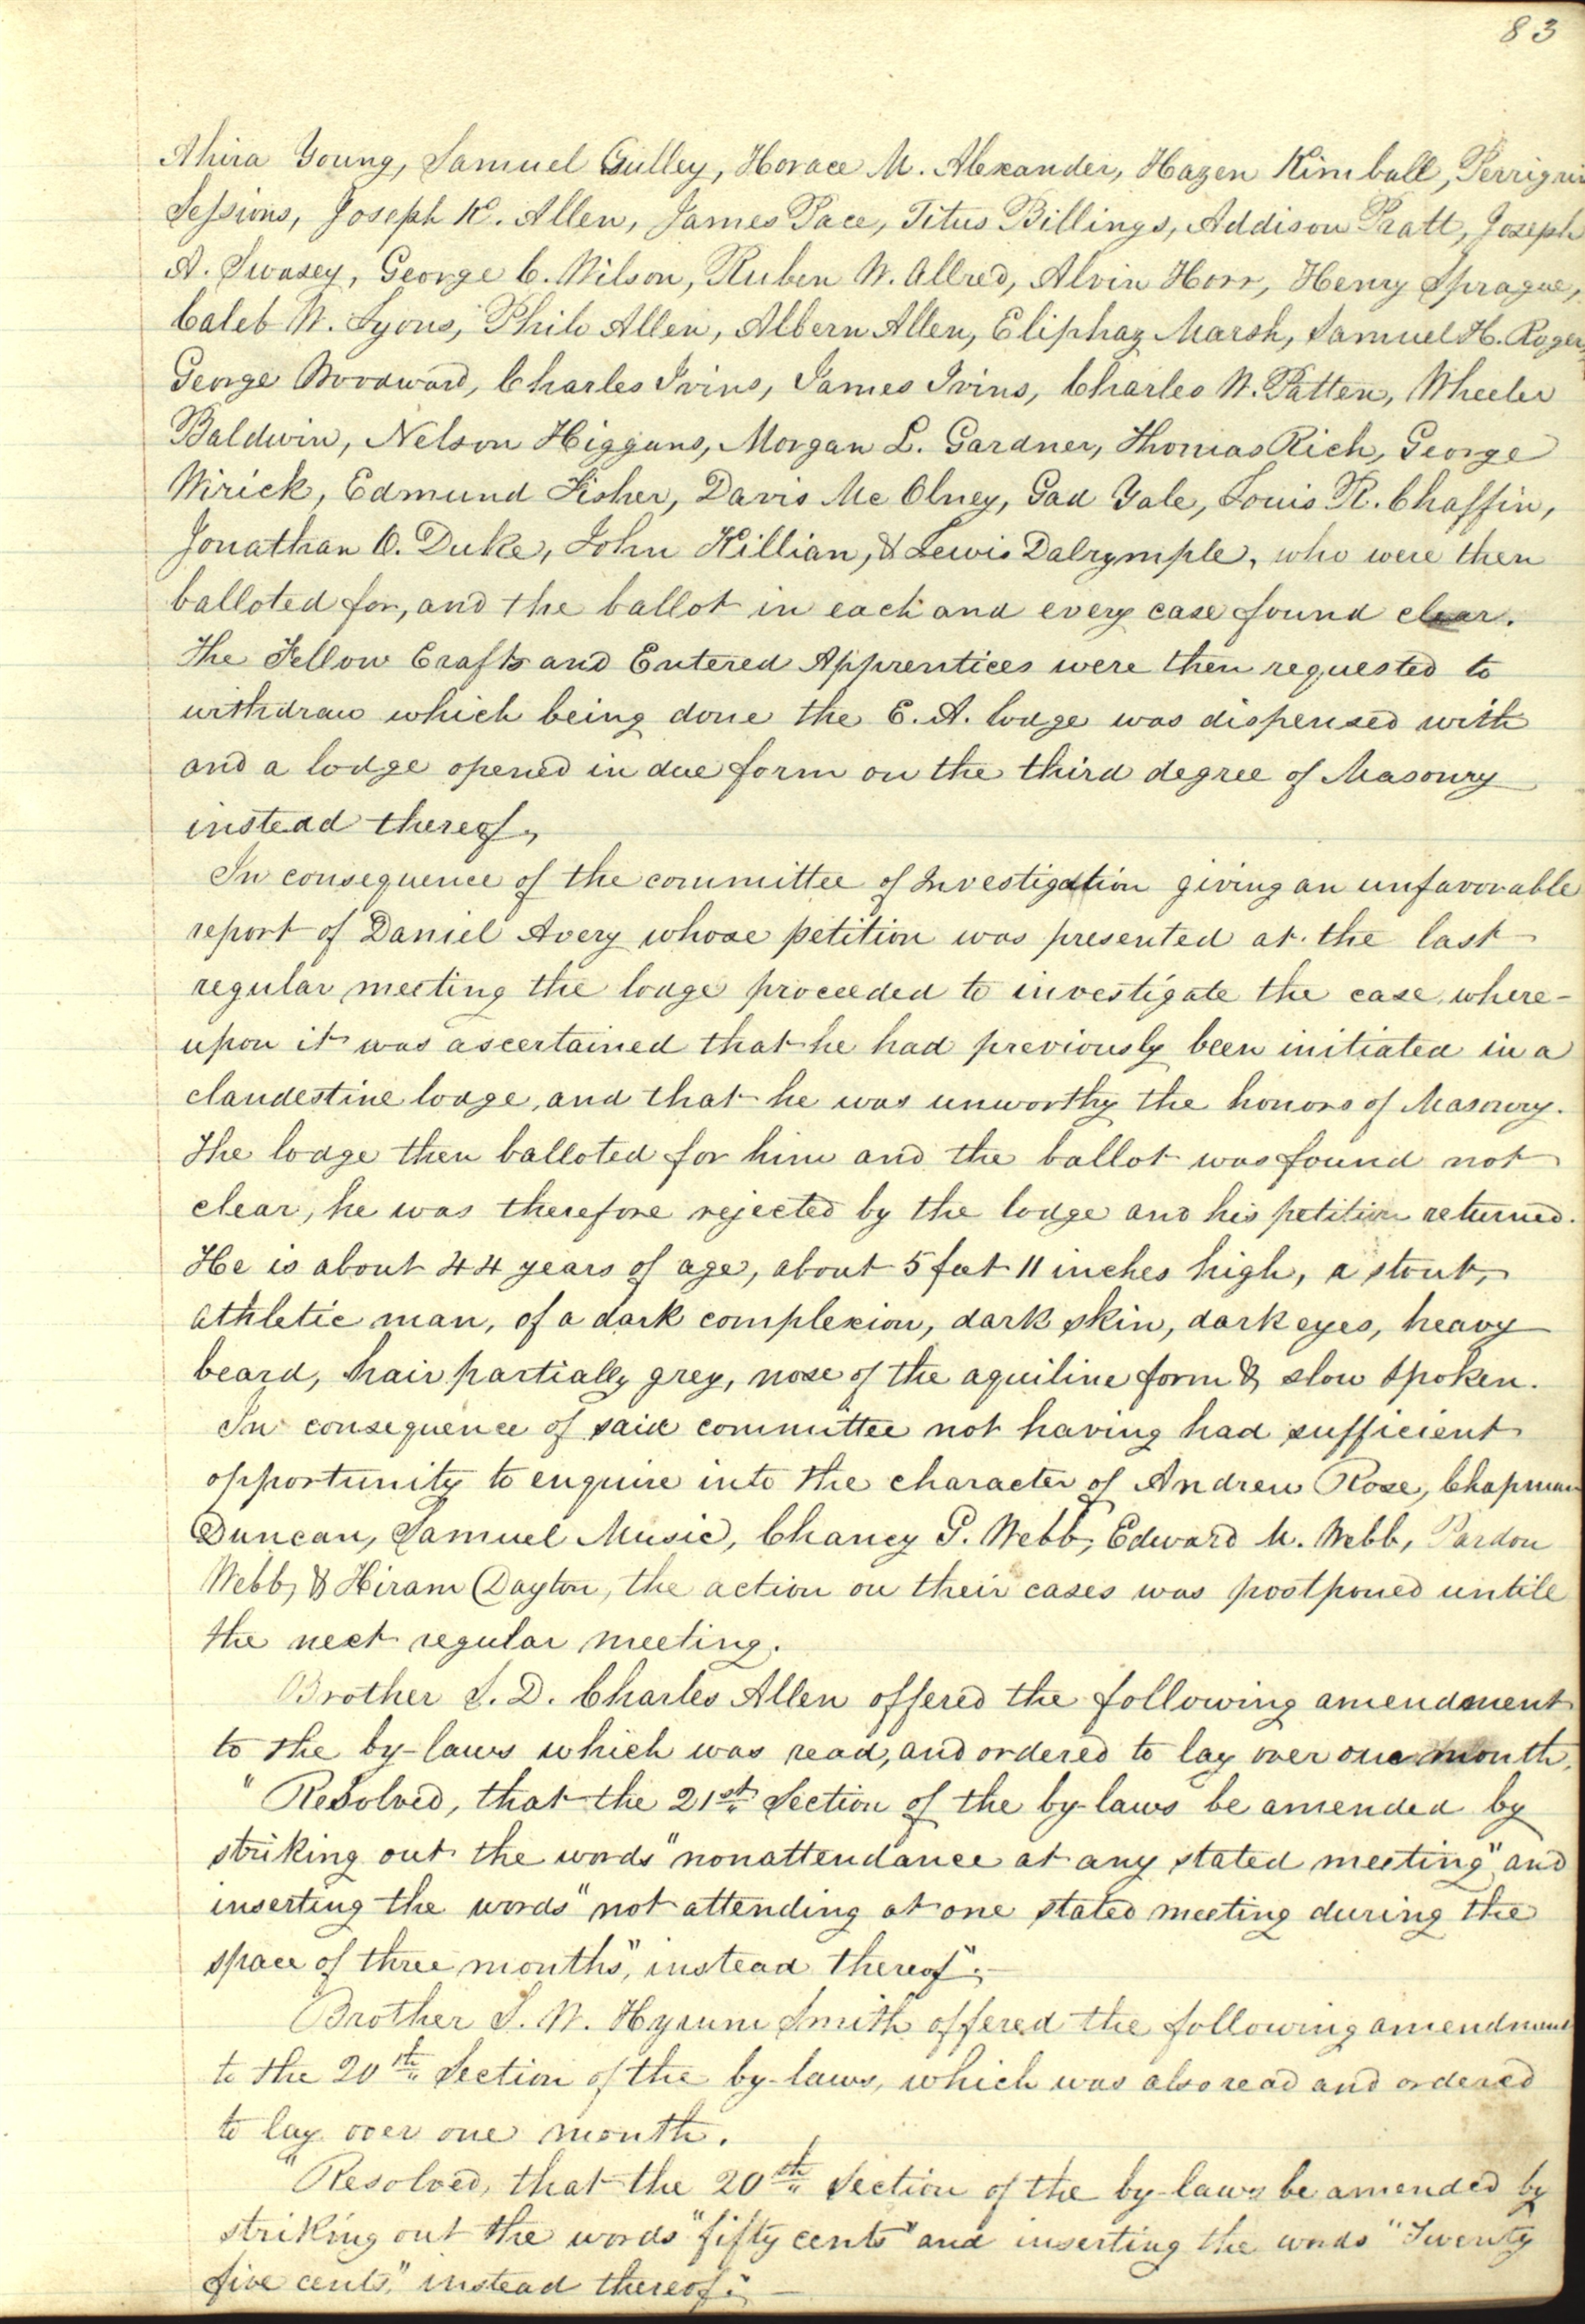 83
Ahira Young, Samuel Gulley, Horace M. Alexander, Hazen Kimball, Perrigrin
Sessions, Joseph K. Allen, James Pace, Titus Billings, Addison Pratt, Joseph
A. Swasey, George C. Wilson, Ruben W. Allred, Alvin Horr, Henry Sprague,
Caleb W. Lyons, Philo Allen, Albern Allen, Eliphaz Marsh, Samuel H. Rogers,
George Woodward, Charles Ivins, James Ivins, Charles W. Patten, Wheeler
Baldwin, Nelson Higgans, Morgan L. Gardner, Thomas Rich, George
Wirick, Edmund Fisher, Davis Mc Olney, Gad Yale, Louis R. Chaffin,
Jonathan O. Duke, John Killian, & Lewis Dalrymple, who were then
balloted for, and the ballot in each and every case found clear.
The Fellow Crafts and Entered Apprentices were then requested to
withdraw which being done the E. A. lodge was dispensed with
and a lodge opened in due form on the third degree of Masonry
instead thereof,
In consequence of the committee of Investigation giving an unfavorable
report of Daniel Avery whose petition was presented at the last
regular meeting the lodge proceeded to investigate the case where-
upon it was ascertained that he had previously been initiated in a
clandestine lodge, and that he was unworthy the honors of Masonry.
The lodge then balloted for him and the ballot was found not
clear, he was therefore rejected by the lodge and his petition returned.
He is about 44 years of age, about 5 feet 11 inches high, a stout,
athletic man, of a dark complexion, dark skin, dark eyes, heavy
beard, hair partially grey, nose of the aquiline form & slow spoken.
In consequence of said committee not having had sufficient
opportunity to enquire into the character of Andrew Rose, Chapman
Duncan, Samuel Music, Chancy G. Webb, Edward M. Webb, Pardon
Webb, & Hiram Dayton, the action on their cases was postponed untile
the next regular meeting.
Brother S. D. Charles Allen offered the following amendment
to the by-laws which was read, and ordered to lay over one month.
"Resolved, that the 21st Section of the by-laws be amended by
striking out the words "nonattendance at any stated meeting" and
inserting the words "not attending at one stated meeting during the
space of three months", instead thereof".—
Brother S. W. Hyrum Smith offered the following amendment
to the 20th Section of the by-laws, which was also read and ordered
to lay over one month.
"Resolved, that the 20th Section of the by-laws be amended by
striking out the words "fifty cents" and inserting the words "Twenty
five cents," instead thereof".—